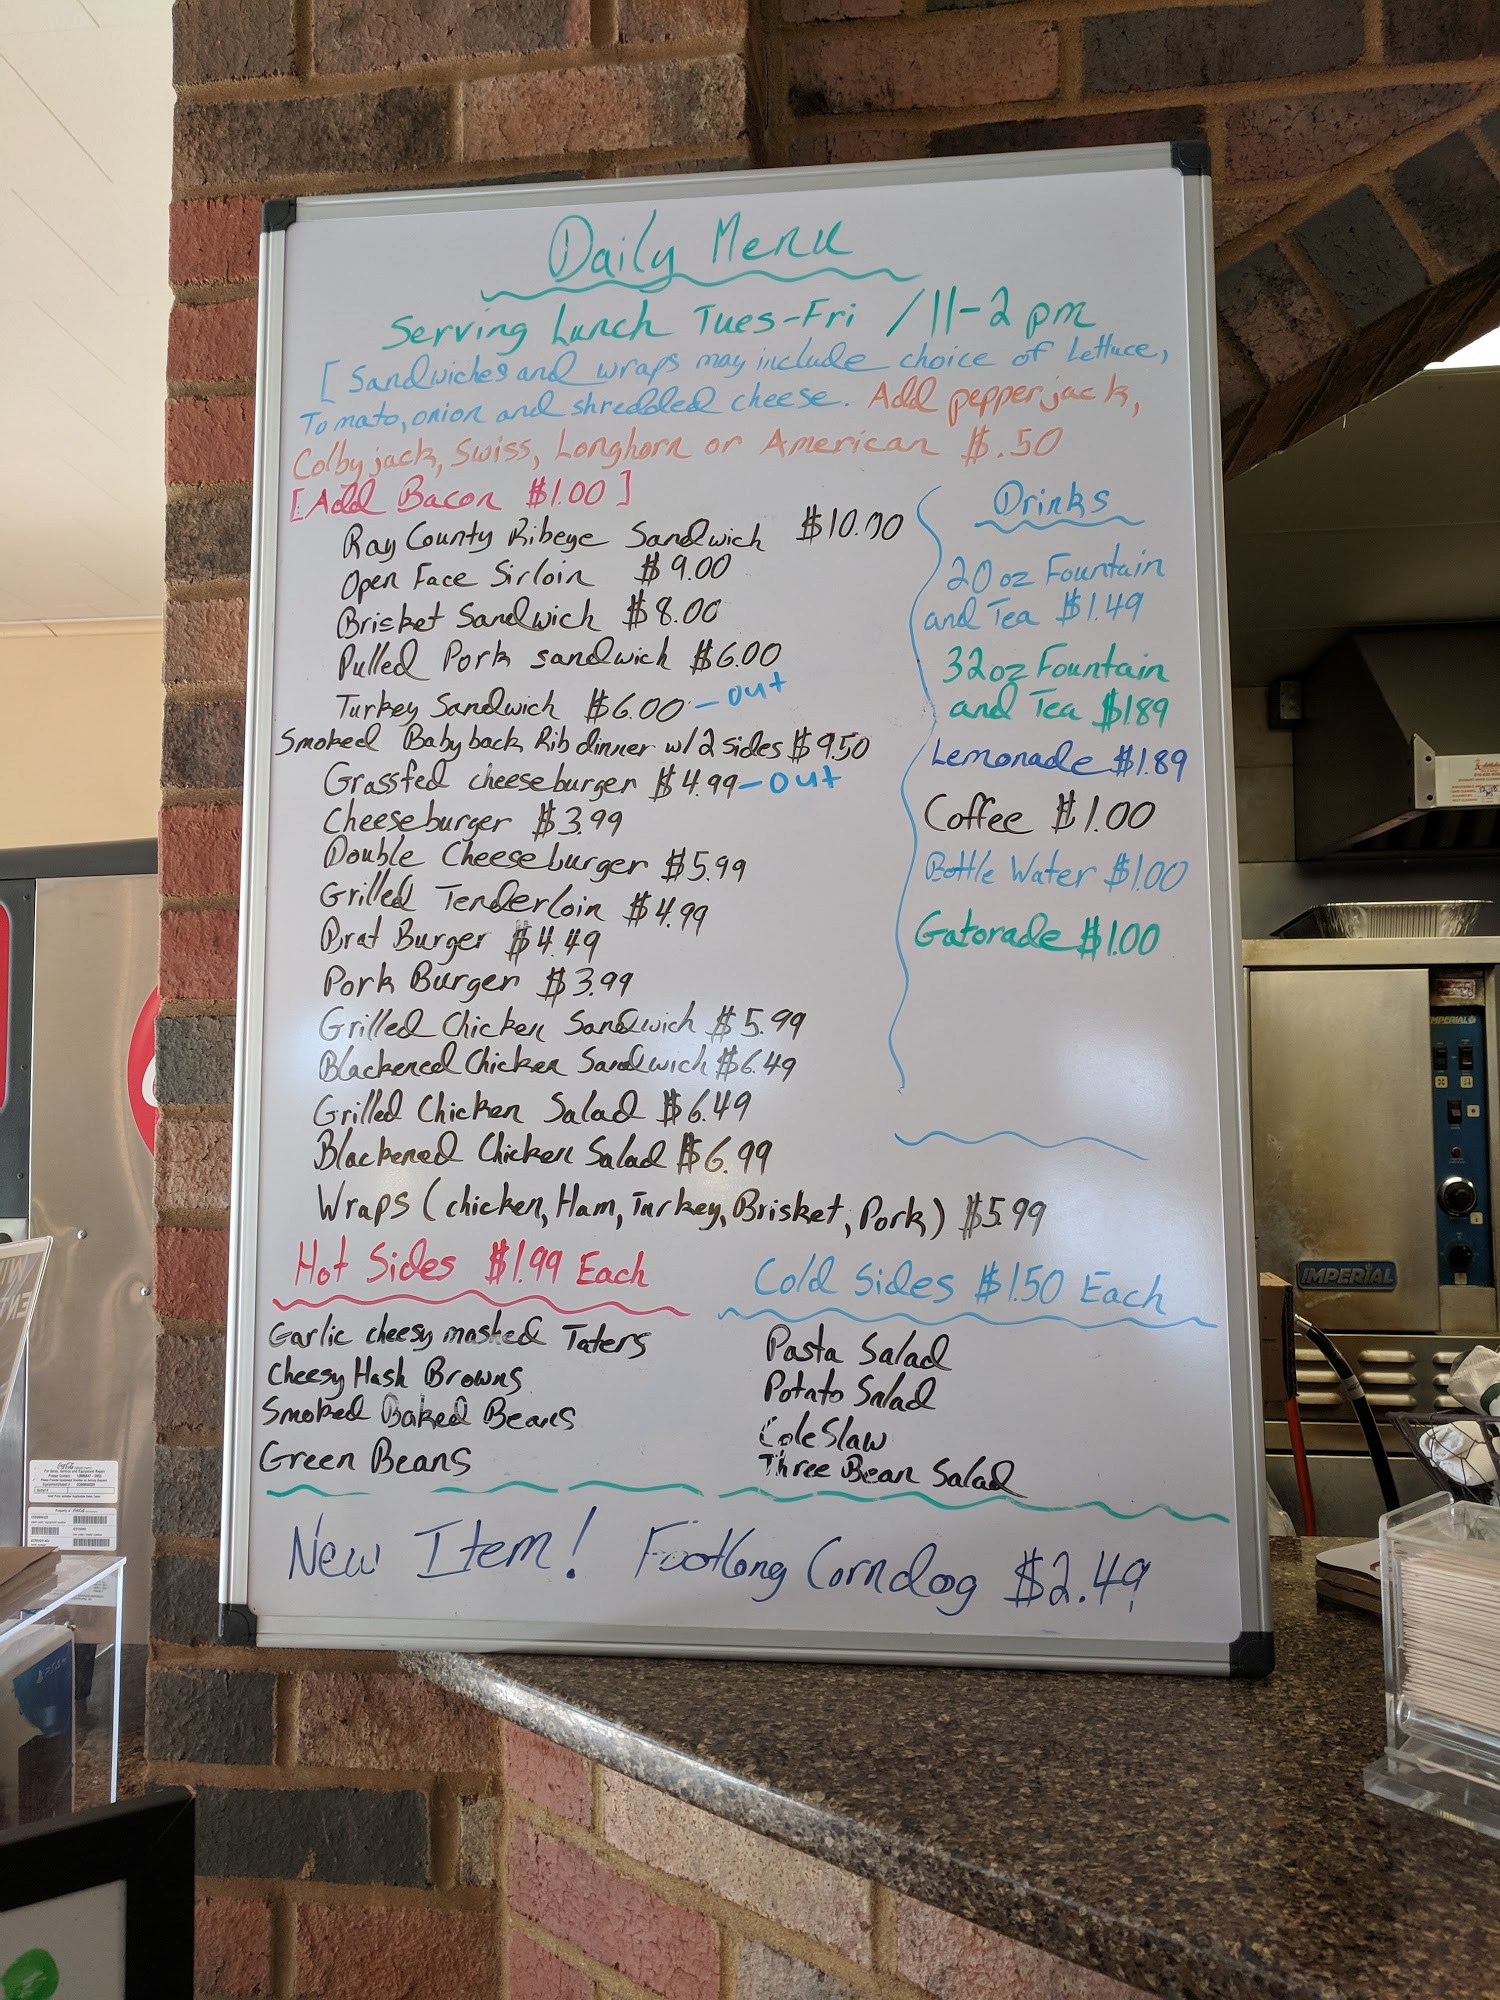 Daily Menu
Serving Lunch Tues-Fri / 11-2 pm
[Sandwiches and wraps may include choice of Lettuce,
Tomato, onion and shredded cheese. Add pepper jack,
Colby jack, Swiss, Longhorn or American $.50
[Add Bacon $1.00]
Ray County Ribeye Sandwich $10.00
Open Face Sirloin $9.00
Brisket Sandwich $8.00
Pulled Pork sandwich $6.00
Turkey Sandwich $6.00 - out
Smoked Baby back Rib dinner w/2 sides $9.50
Grassfed cheeseburger $4.99 - out
Cheeseburger $3.99
Double Cheeseburger $5.99
Grilled Tenderloin $4.99
Brat Burger $4.49
Pork Burger $3.99
Grilled Chicken Sandwich $5.99
Blackened Chicken Sandwich $6.49
Grilled Chicken Salad $6.49
Blackened Chicken Salad $6.99
Wraps (chicken, Ham, Turkey, Brisket, Pork) $5.99
Drinks
20 oz Fountain
and Tea $1.49
32 oz Fountain
and Tea $1.89
Lemonade $1.89
Coffee $1.00
Bottle Water $1.00
Gatorade $1.00
Hot Sides $1.99 Each
Garlic cheesy mashed Taters
Cheesy Hash Browns
Smoked Baked Beans
Green Beans
Cold Sides $1.50 Each
Pasta Salad
Potato Salad
Cole Slaw
Three Bean Salad
New Item! Footlong Corndog $2.49
IMPERIAL
IMPERIAL